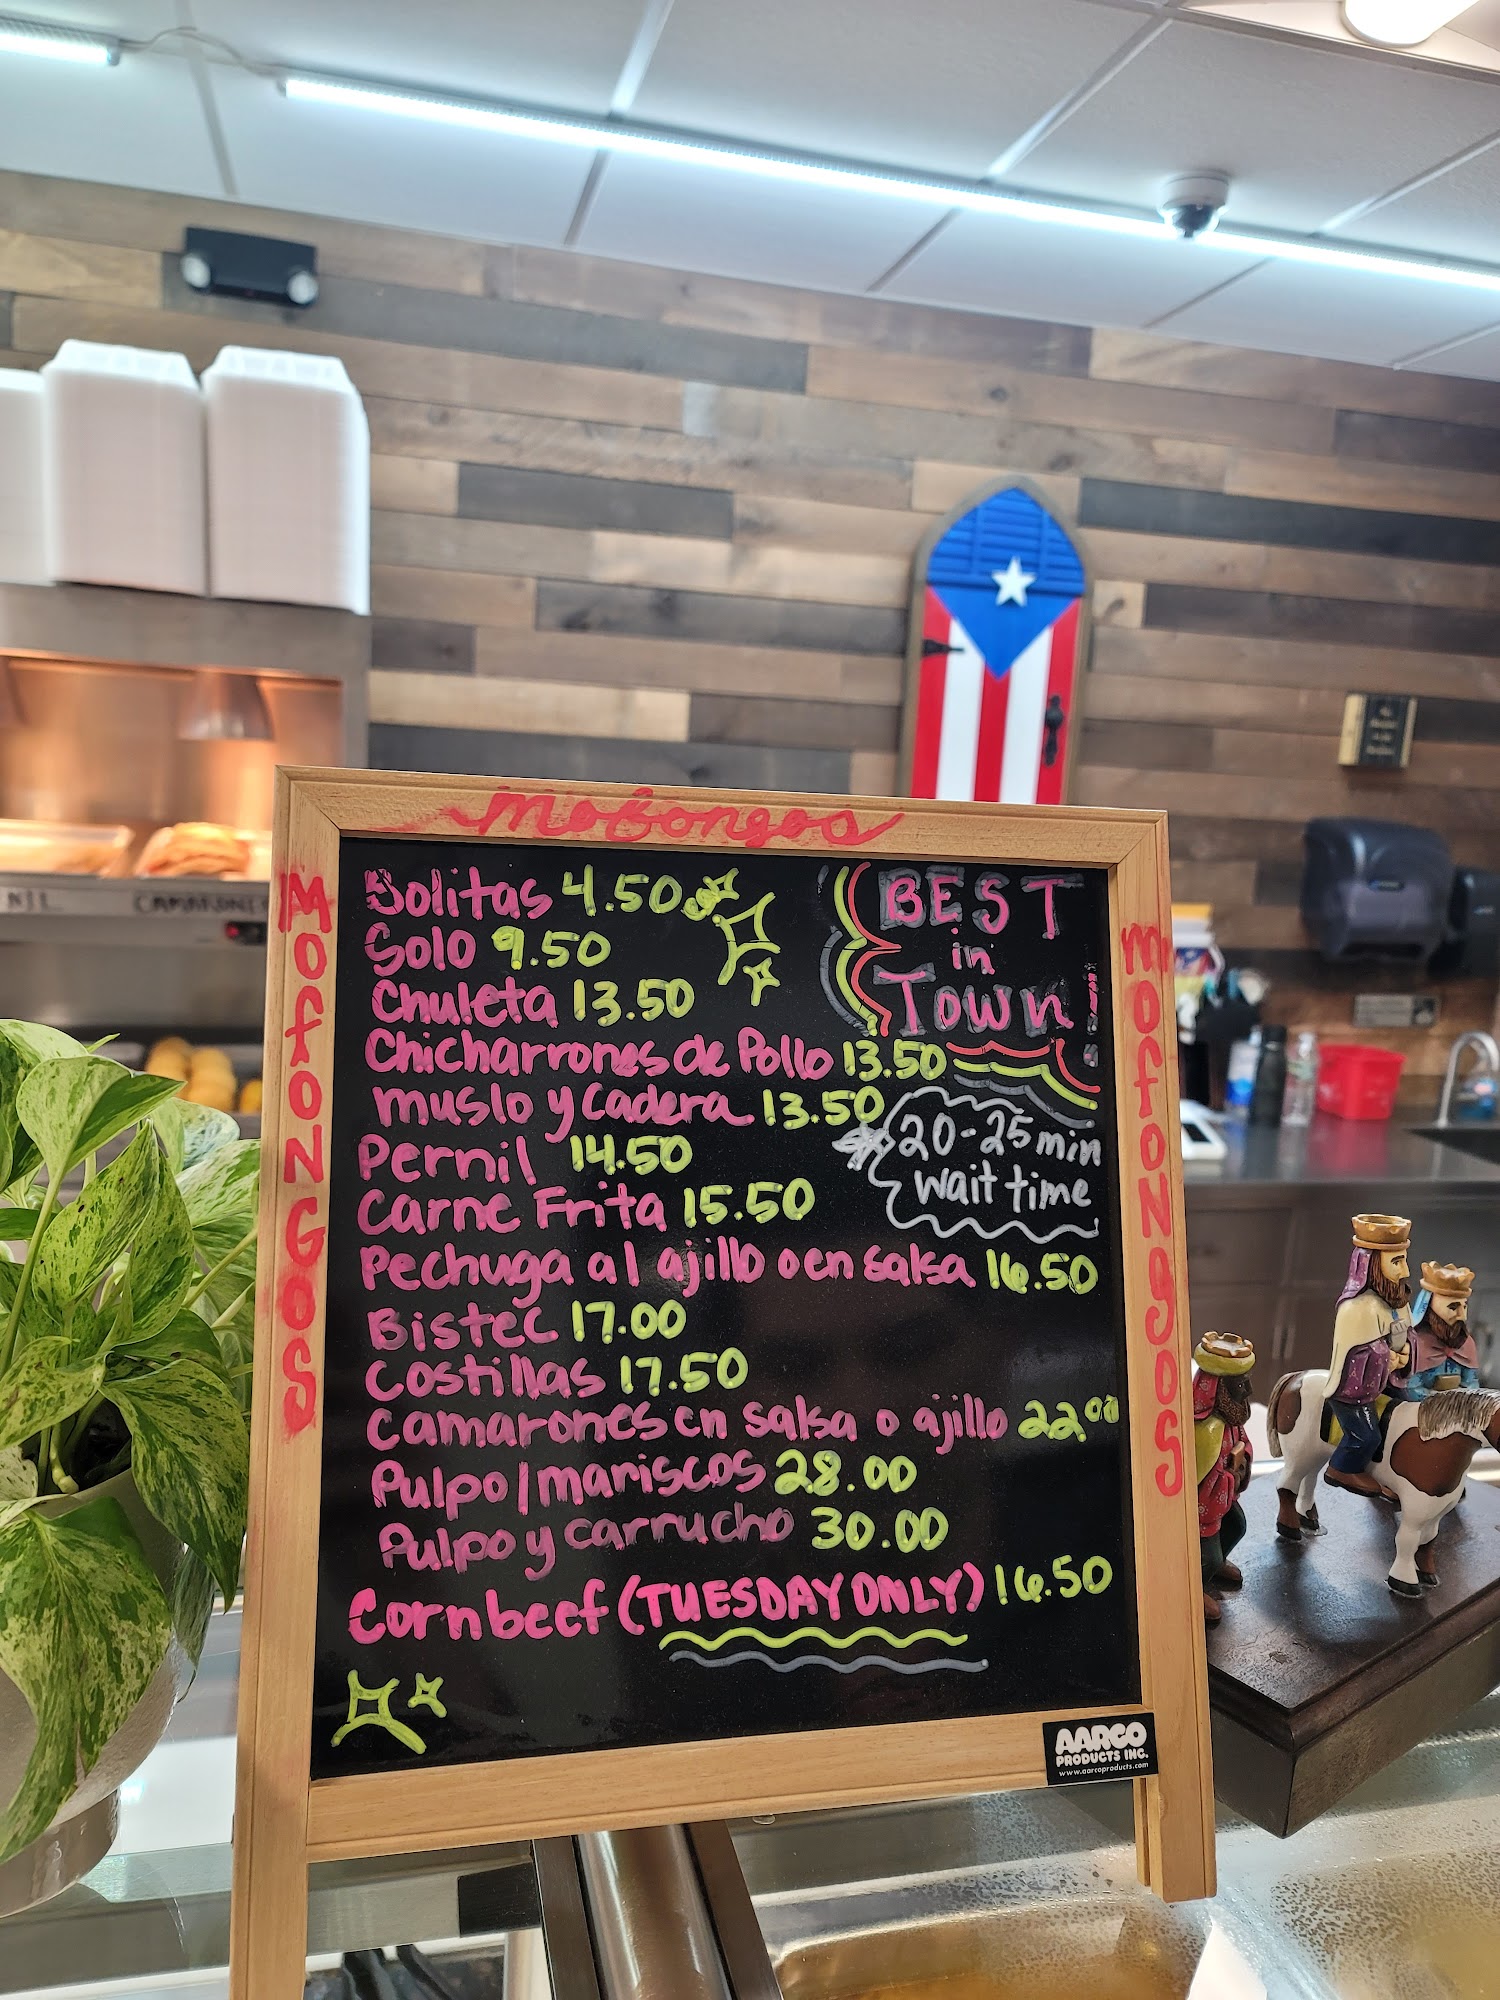 Mofongos
MOFONGOS
Bolitas 4.50
Solo 9.50
Chuleta 13.50
Chicharrones de Pollo 13.50
muslo y cadera 13.50
Pernil 14.50
Carne Frita 15.50
Pechuga al ajillo o en salsa 16.50
Bistec 17.00
Costillas 17.50
Camarones en salsa o ajillo 22.00
Pulpo/mariscos 28.00
Pulpo y carrucho 30.00
Cornbeef (TUESDAY ONLY) 16.50
BEST
in
Town!
20-25 min
wait time
mofoNgos
AARCO
PRODUCTS INC.
www.aarcoproducts.com
NIL
CAMARONE